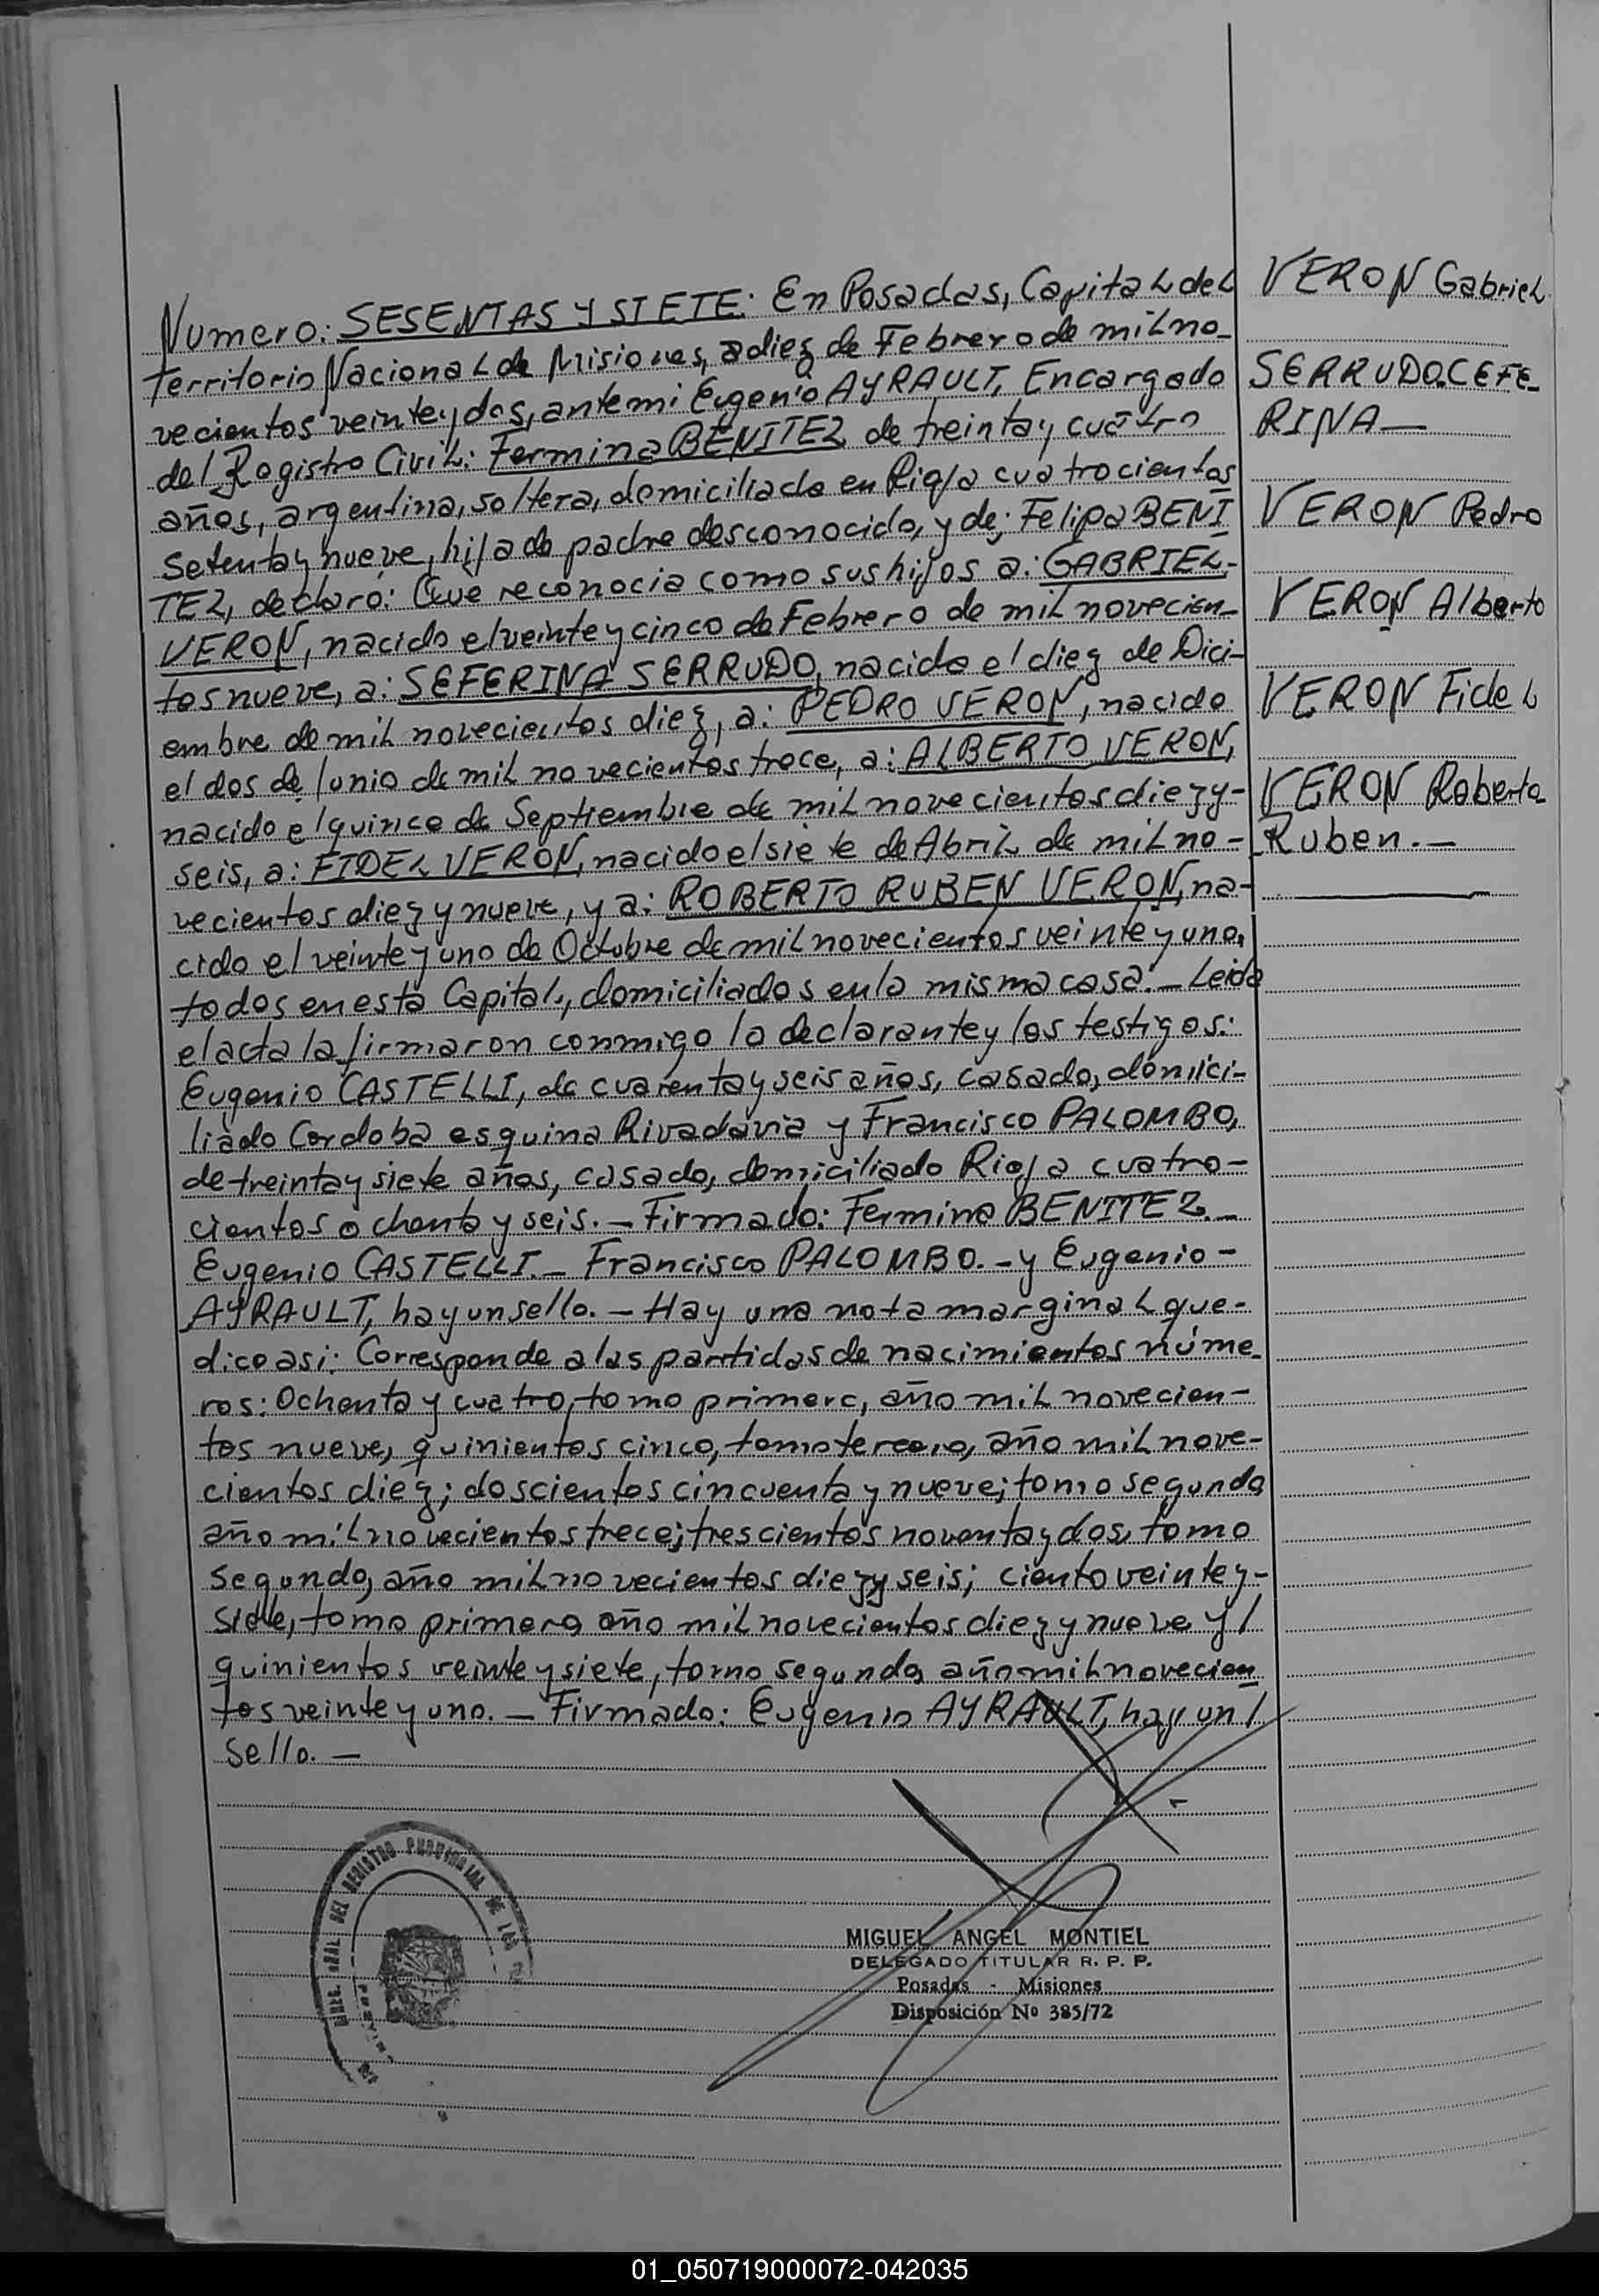 Numero: SESENTAS Y SIETE: En Posadas, Capital del
territorio Nacional de Misiones, a diez de Febrero de mil no-
vecientos veinte y dos, ante mi Eugenio AYRAULT, Encargado
del Registro Civil: Fermina BENITEZ de treinta y cuatro
años, argentina, soltera, domiciliada en Rioja cuatrocientos
setenta y nueve, hija de padre desconocido, y de: Felipa BENI
TEZ, declaró: Que reconocia como sus hijos a: GABRIEL-
VERON, nacido el veinte y cinco de Febrero de mil novecien-
tos nueve, a: SEFERINA SERRUDO, nacida el diez de Dici-
embre de mil novecientos diez, a: PEDRO VERON, nacido
el dos de Junio de mil novecientos trece, a: ALBERTO VERON,
nacido el quince de Septiembre de mil novecientos diez y-
seis, a: FIDEL VERON, nacido el siete de Abril de mil no-
vecientos diez y nueve, y a: ROBERTO RUBEN VERON, na-
cido el veinte y uno de Octubre de mil novecientos veinte y uno,
todos en esta Capital, domiciliados en la misma casa.- Leida
el acta la firmaron conmigo la declarante y los testigos:
Eugenio CASTELLI, de cuarenta y seis años, casado, domici-
liado Cordoba esquina Rivadavia y Francisco PALOMBO,
de treinta y siete años, casado, domiciliado Rioja cuatro-
cientos ochenta y seis.- Firmado: Fermina BENITEZ.-
Eugenio CASTELLI.- Francisco PALOMBO.- y Eugenio-
AYRAULT, hay un sello.- Hay una nota marginal que-
dice asi: Corresponde a las partidas de nacimientos núme-
ros: Ochenta y cuatro, tomo primero, año mil novecien-
tos nueve, quinientos cinco, tomo tercero, año mil nove-
cientos diez; doscientos cincuenta y nueve; tomo segundo
año mil novecientos trece; trescientos noventa y dos, tomo
segundo, año mil novecientos diez y seis; ciento veinte y-
siete, tomo primero año mil novecientos diez y nueve y/
quinientos veinte y siete, tomo segundo año mil novecien
tos veinte y uno.- Firmado: Eugenio AYRAULT, hay un/
sello.-
VERON Gabriel
SERRUDO CEFE-
RINA-
VERON Pedro
VERON Alberto
VERON Fidel
VERON Roberto
Ruben.-
DEL REGISTRO PROVINCIAL DE LAS
MIGUEL ANGEL MONTIEL
DELEGADO TITULAR R. P. P.
Posadas - Misiones
Disposición Nº 385/72
01_050719000072-042035